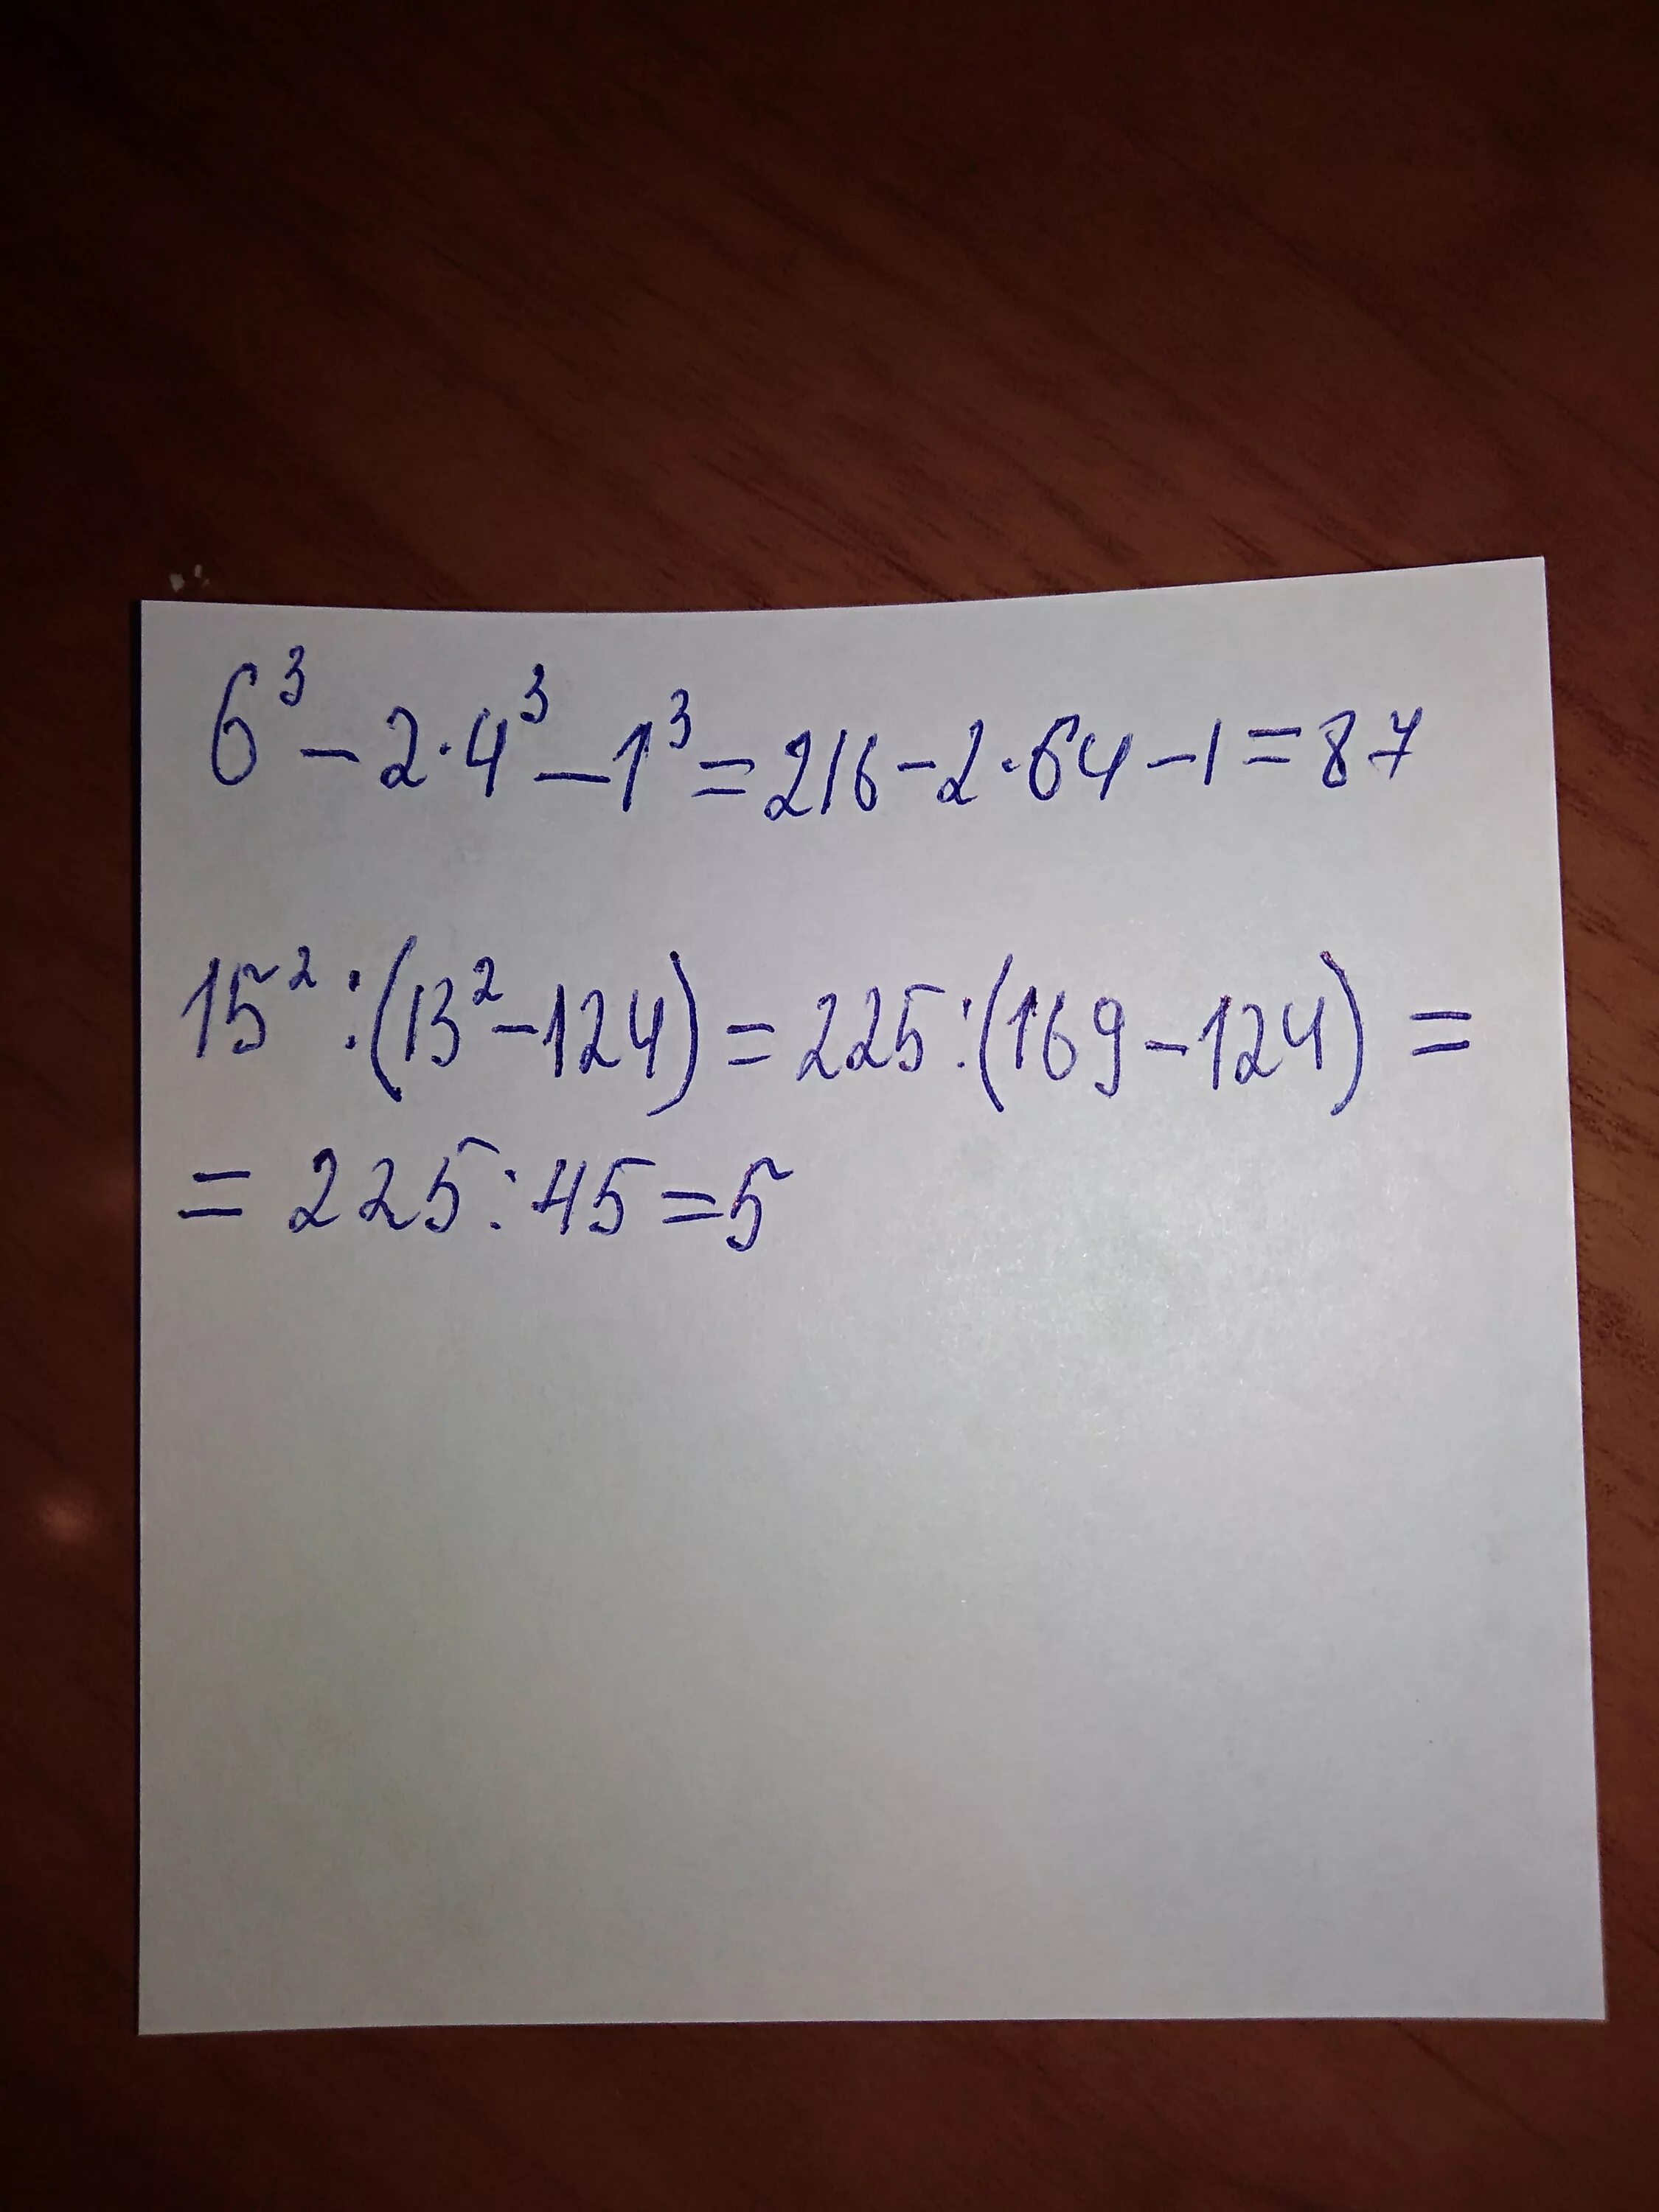 6³ - 2·4³ - 1³ = 216 - 2·64 - 1 = 87
15² : (13² - 124) = 225 : (169 - 124) =
= 225 : 45 = 5